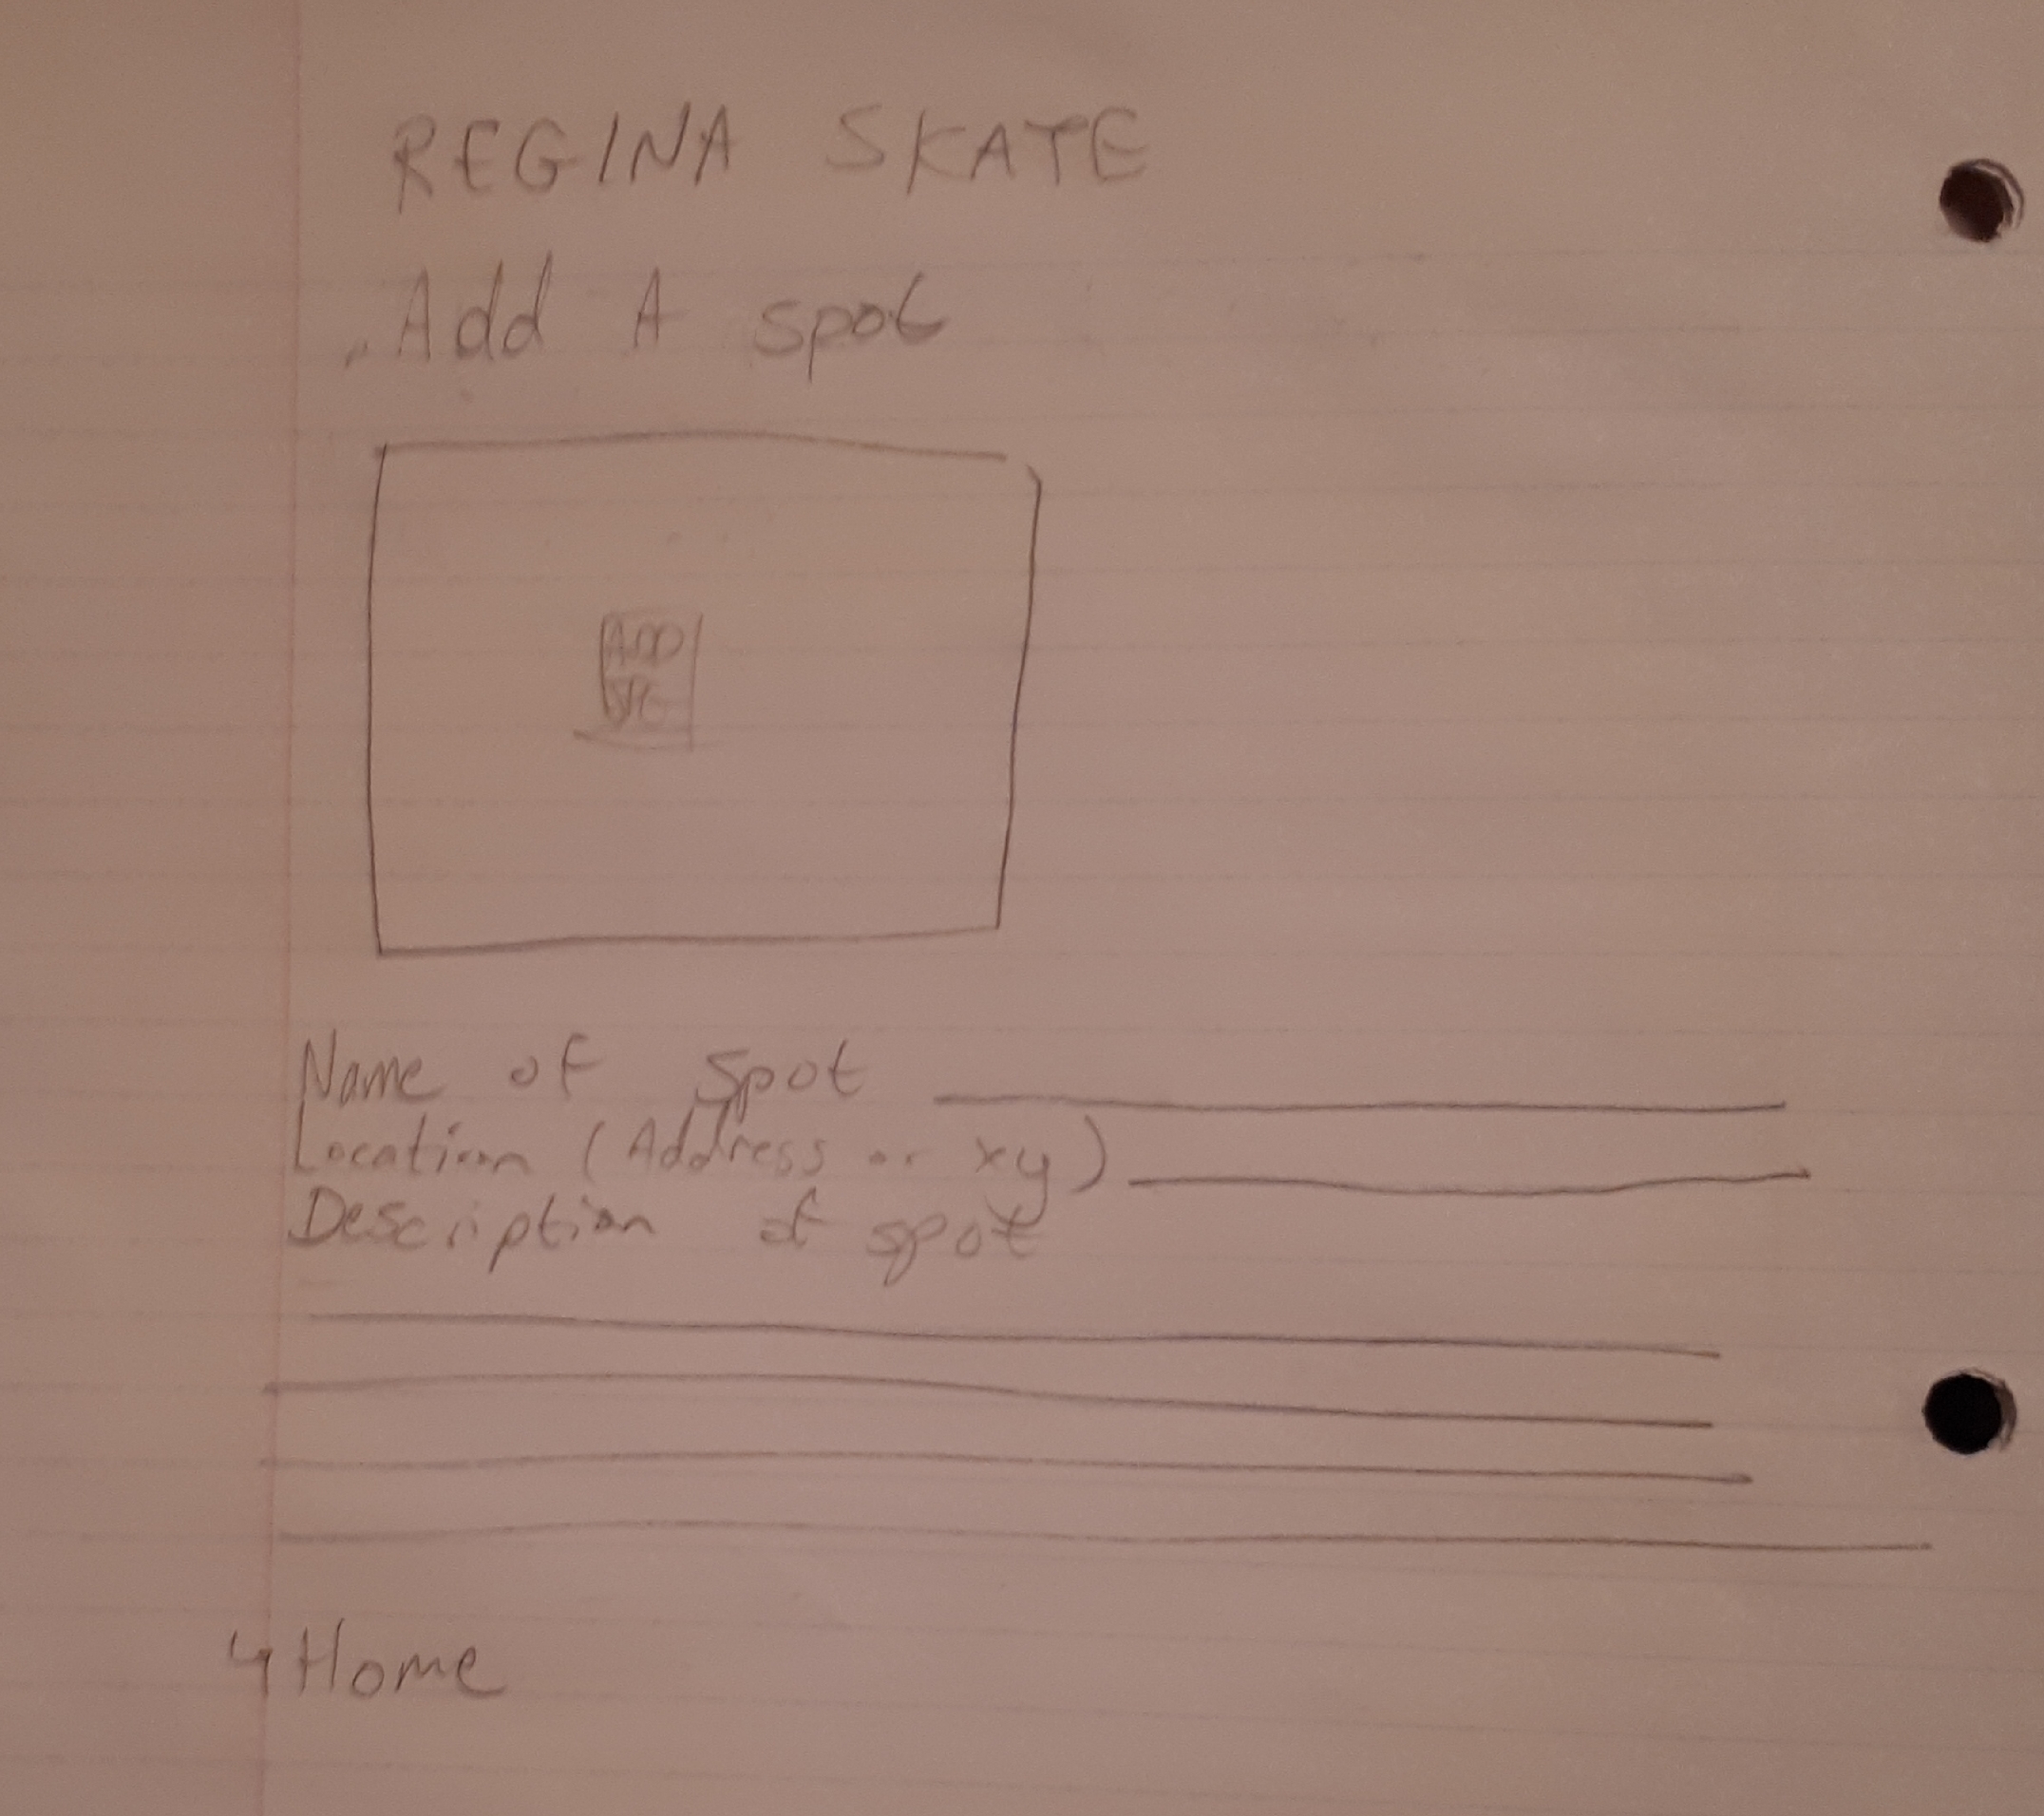 REGINA SKATE
Add A spot
ADD
Name of Spot
Location (Address or xy)
Description of spot
Home